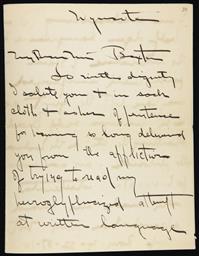 My Dear Miss Baxter
In sinful dignity
I salute you & in sack
cloth & ashes of penitence
for having so long delivered
you from the affliction
of trying to read my
hieroglyphicized attempt
at written language